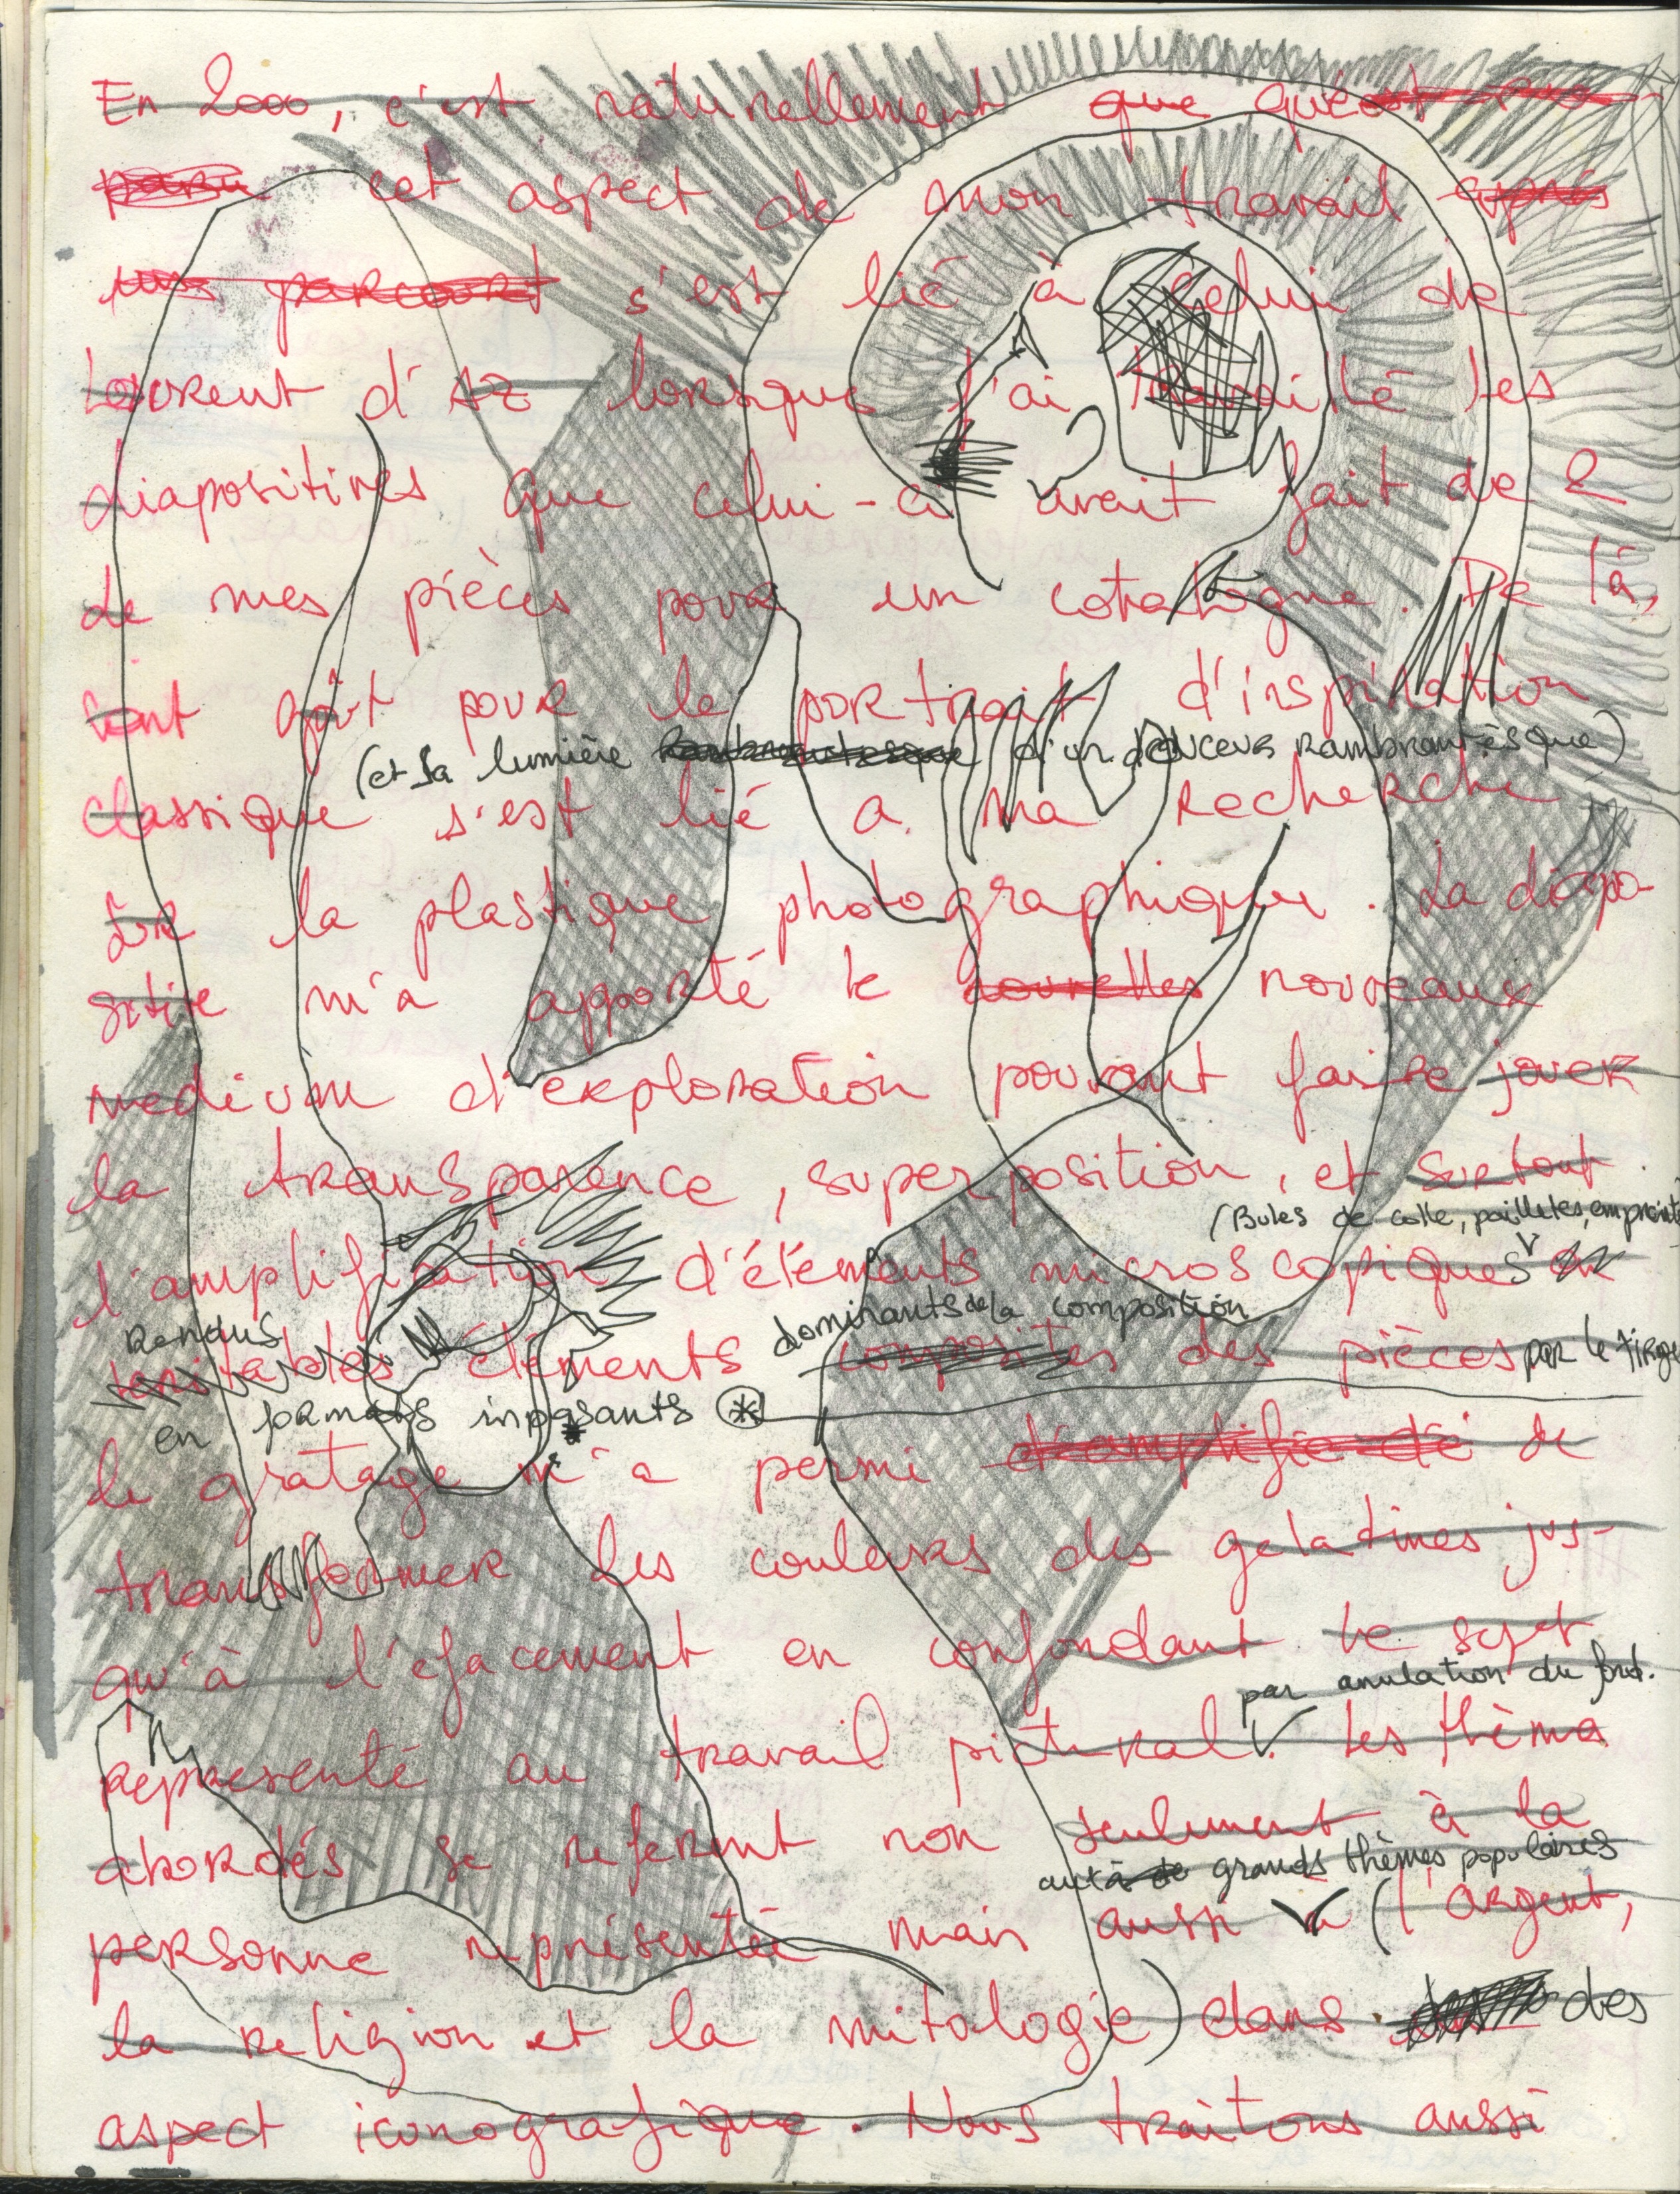 En 2000, c'est naturellement que
cet aspect de mon travail
s'est lié à celui de
Laurent d'AZ lorsque j'ai travaillé les
diapositives que celui-ci avait fait de 2
de mes pièces pour un catalogue. De là,
sont goût pour le portrait d'inspiration
(et sa lumière d'un douceur rambrantèsque)
classique s'est lié a ma recherche
sur la plastique photographique. La diapo-
sitive m'a apporté le nouveaux
medium d'exploration pouvant faire jouer
la transparence, superposition, et surtout
(Bules de colle, pailletes,
l'amplification d'éléments microscopiques
Rendus
éléments
dominants de la composition
des pièces par le tirage
en formats inposants *
le gratage m'a permi de
transformer les couleurs des gelatines jus-
qu'à l'efacement en confondant le sujet
par anulation du fond.
representé au travail pictural. Les thèma
abordés se referent non seulement à la
grands thèmes populaires
personne représentée mais aussi à (l'argent,
la religion et la mitologie) dans des
aspect iconografique. Nous traitons aussi